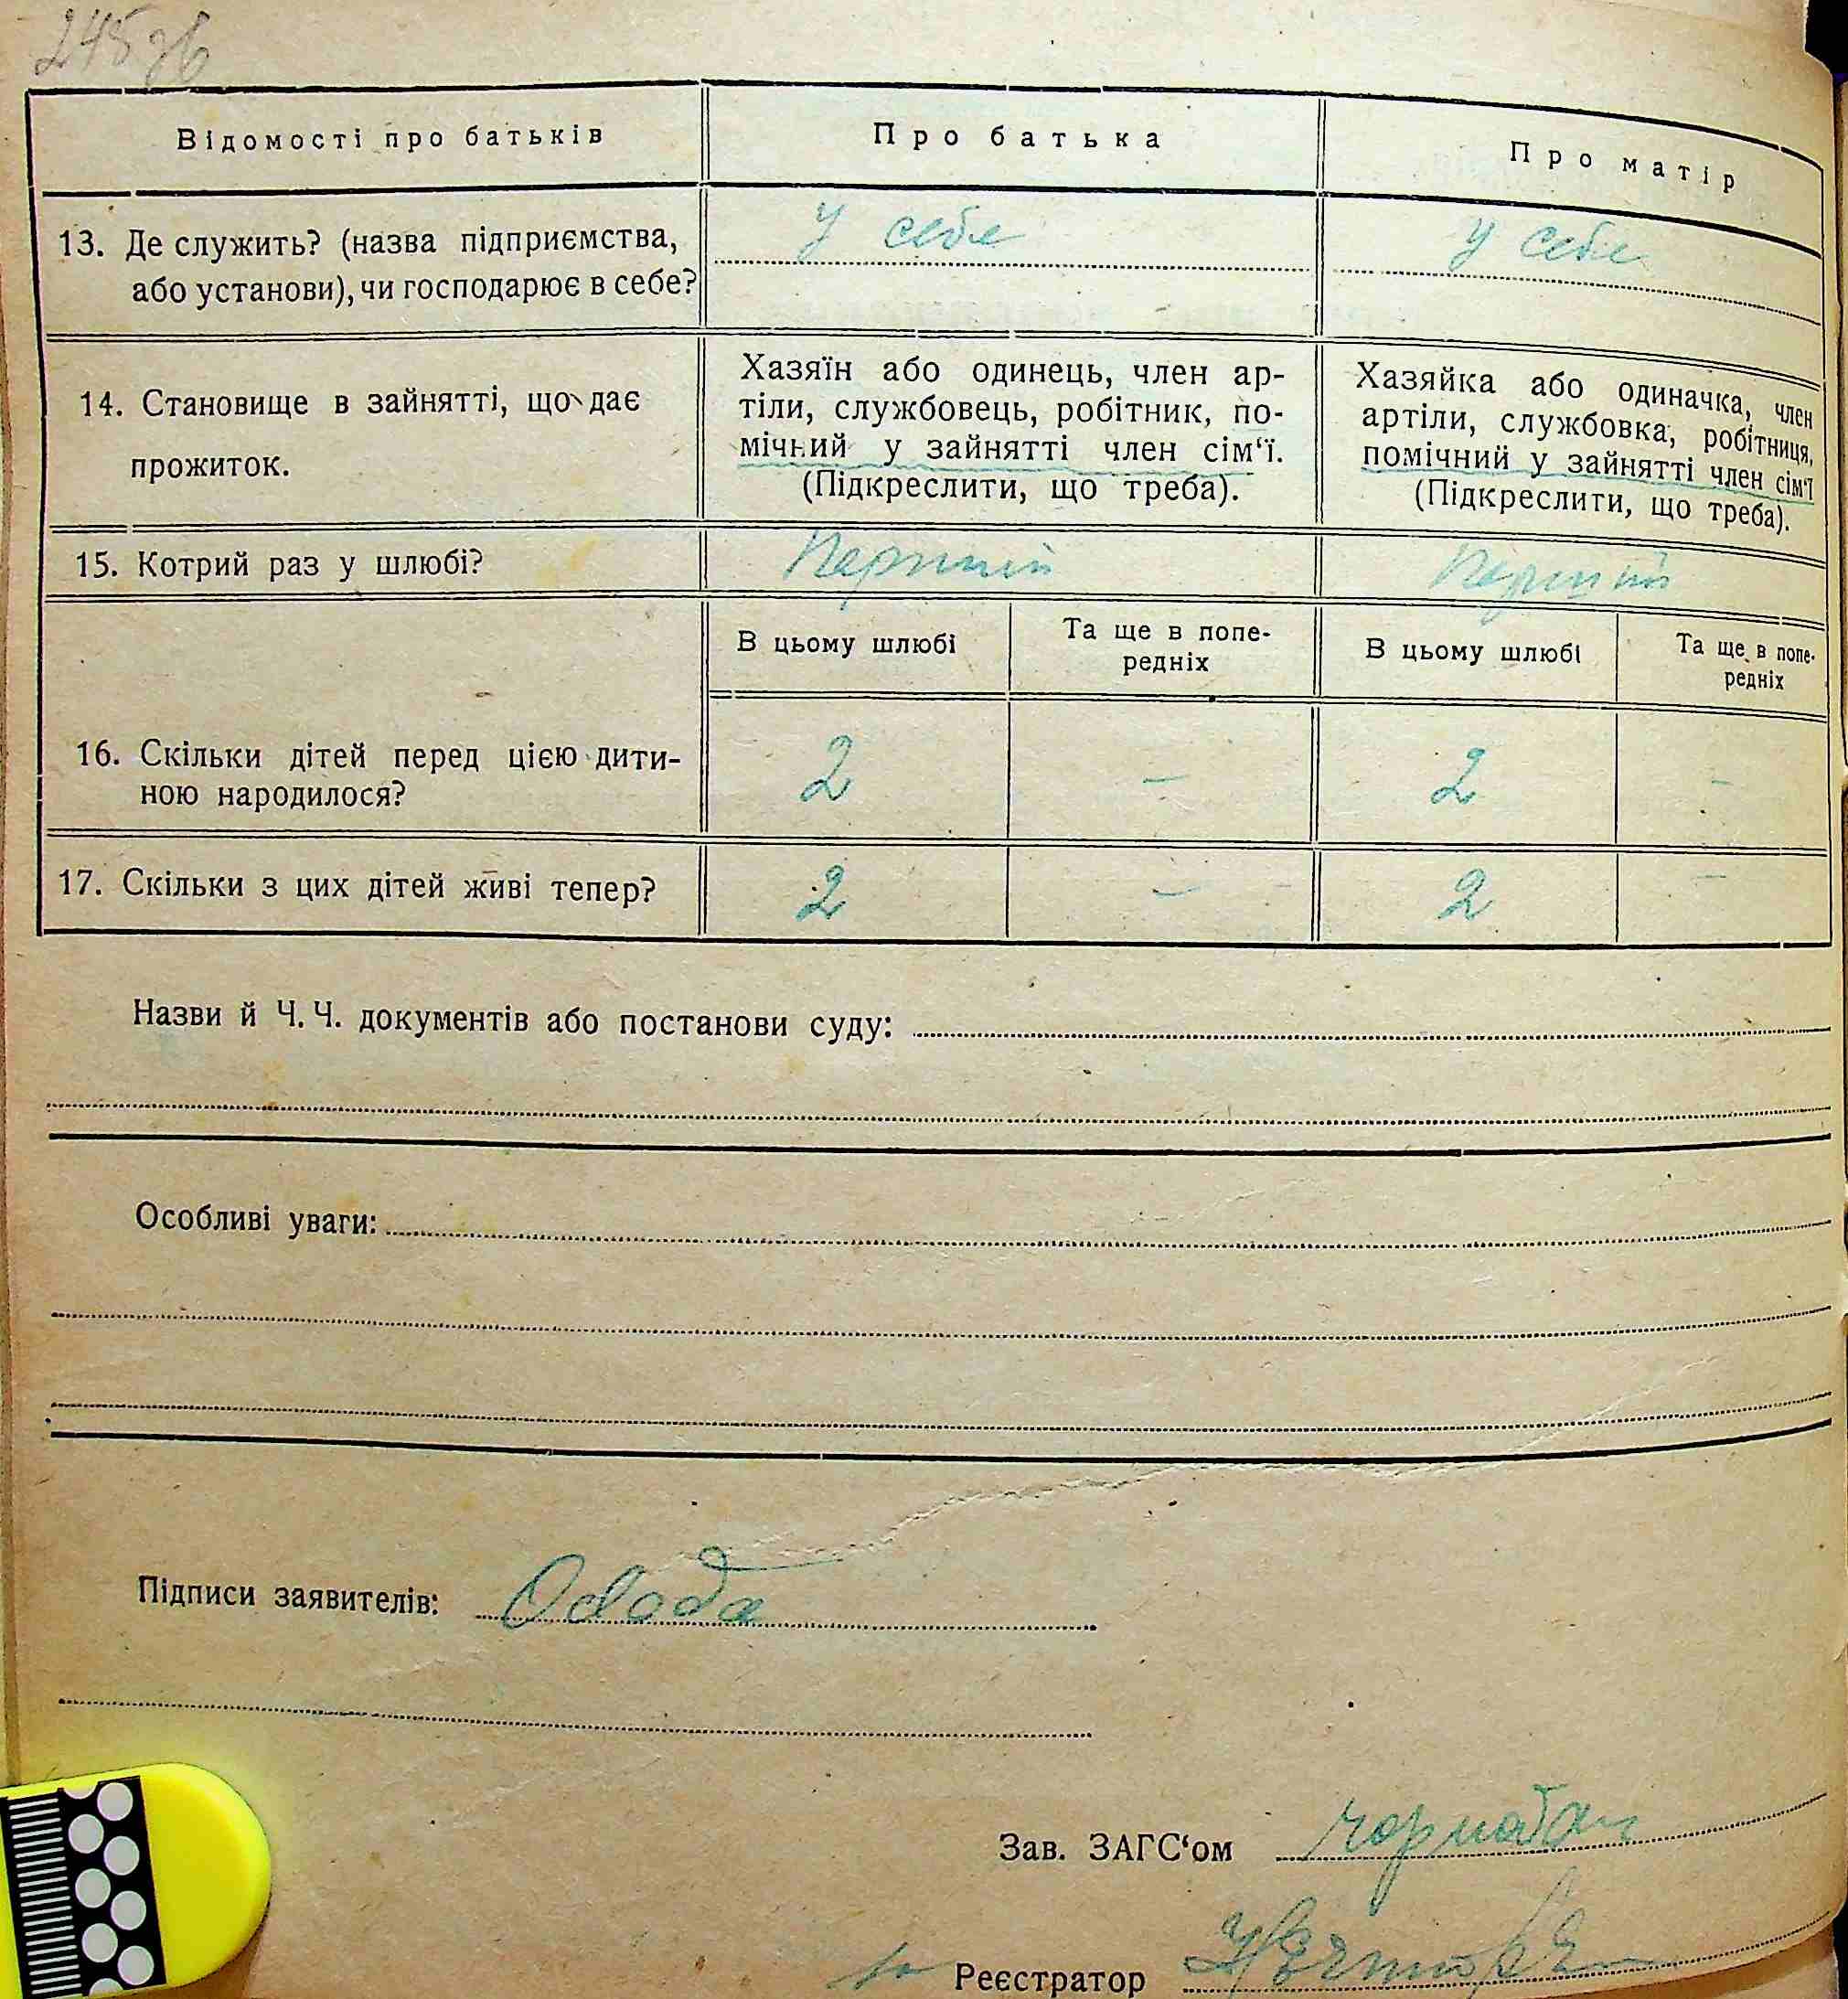 245 зв
Відомості про батьків
Про батька
Про матір
13. Де служить? (назва підприємства,
або установи), чи господарює в себе?
У себе
У себе
14. Становище в зайнятті, що дає
прожиток.
Хазяїн або одинець, член ар-
тіли, службовець, робітник, по-
мічний у зайнятті член сім‘ї.
(Підкреслити, що треба).
Хазяйка або одиначка, член
артіли, службовка, робітниця,
помічний у зайнятті член сім‘ї
(Підкреслити, що треба).
15. Котрий раз у шлюбі?
Перший
Перший
В цьому шлюбі
Та ще в попе-
редніх
В цьому шлюбі
Та ще в попе-
редніх
16. Скільки дітей перед цією дити-
ною народилося?
2
–
2
–
17. Скільки з цих дітей живі тепер?
2
–
2
–
Назви й Ч. Ч. документів або постанови суду:
Особливі уваги:
Підписи заявителів:
Зав. ЗАГС‘ом
Реєстратор